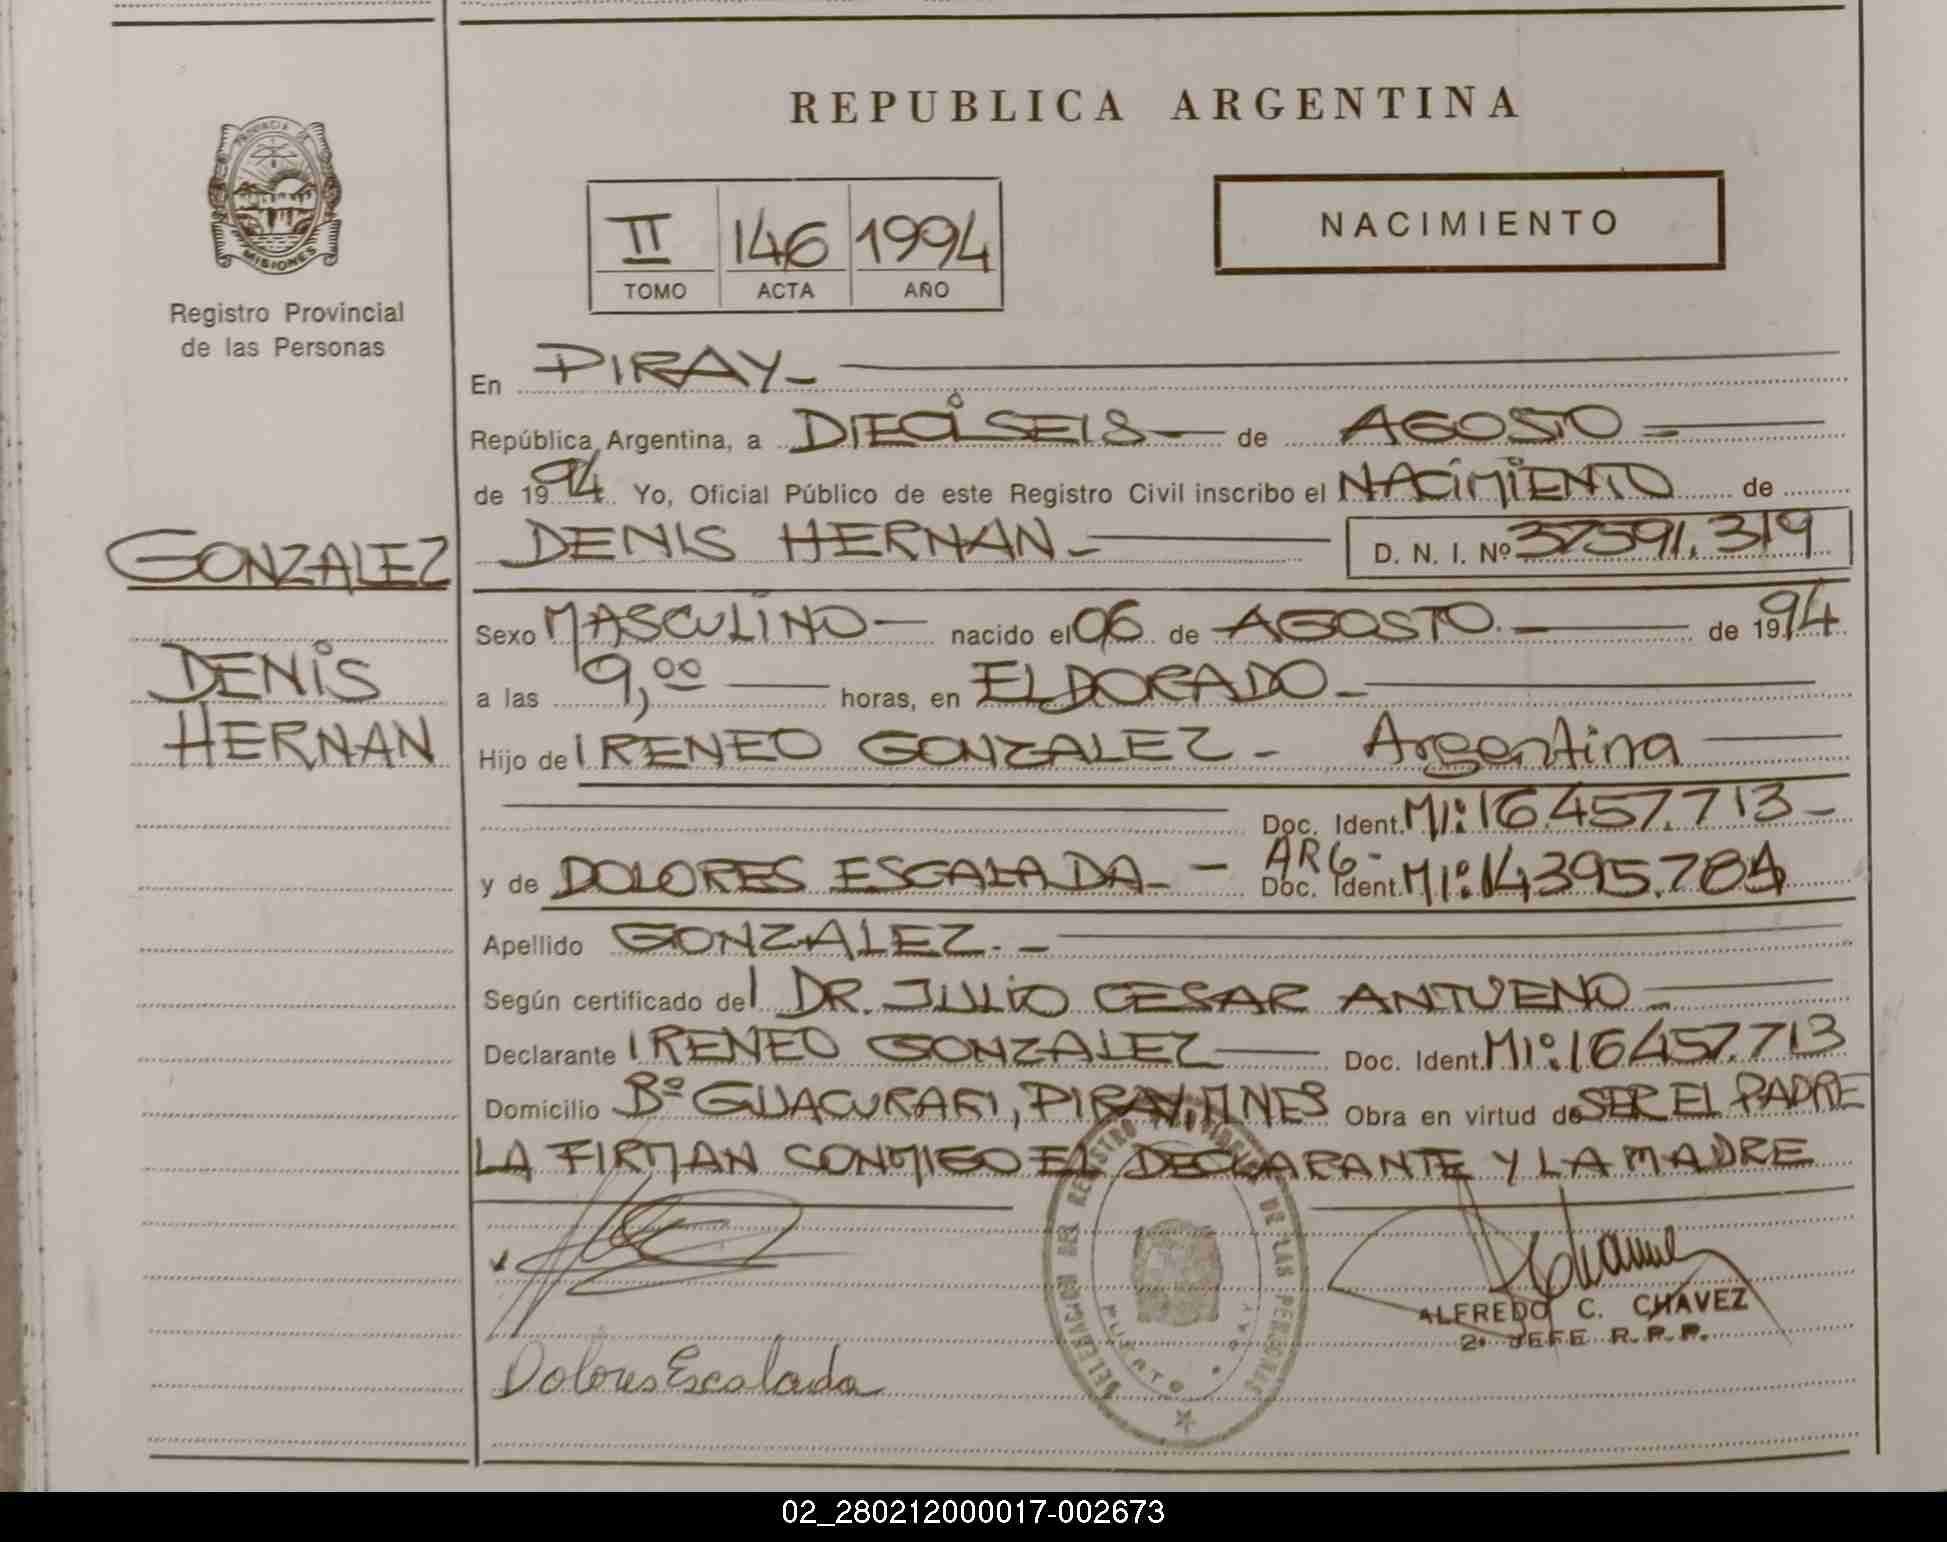 REPUBLICA ARGENTINA
PROVINCIA DE
MISIONES
Registro Provincial
de las Personas
II 146 1994
TOMO ACTA AÑO
NACIMIENTO
En PIRAY-
República Argentina, a DIECISEIS de AGOSTO
de 1994 Yo, Oficial Público de este Registro Civil inscribo el NACIMIENTO de
GONZALEZ
DENIS
HERNAN
DENIS HERNAN- D. N. I. Nº 37591.319
Sexo MASCULINO- nacido el 06 de AGOSTO.- de 1994
a las 9,00 horas, en ELDORADO-
Hijo de IRENEO GONZALEZ- Argentina
Doc. Ident. MI: 16.457.713-
ARG-
y de DOLORES ESCALADA- - Doc. Ident. MI: 14395.784
Apellido GONZALEZ.-
Según certificado del DR. JULIO CESAR ANTUENO-
Declarante IRENEO GONZALEZ Doc. Ident. MI: 16457.713
Domicilio Bº GUACURARI, PIRAY, MNES Obra en virtud de SER EL PADRE
LA FIRMAN CONMIGO EL DECLARANTE Y LA MADRE
DELEGACION DEL REGISTRO PROVINCIAL DE LAS PERSONAS
PUERTO
ALFREDO C. CHAVEZ
2º JEFE R.P.P.
Dolores Escalada
02_280212000017-002673